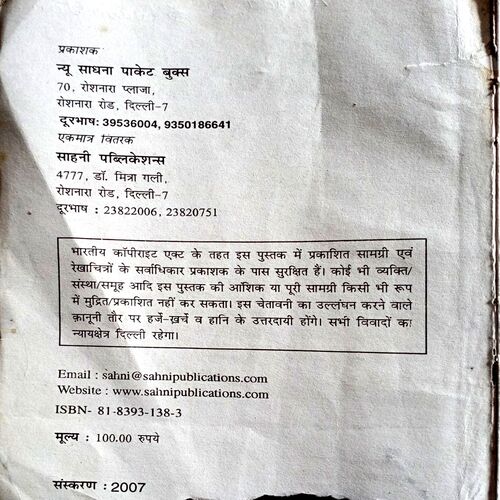 प्रकाशक
न्यू साधना पाकेट बुक्स
70, रोशनारा प्लाजा,
रोशनारा रोड, दिल्ली-7
दूरभाष: 39536004, 9350186641
एकमात्र वितरक
साहनी पब्लिकेशन्स
4777, डॉ. मित्रा गली,
रोशनारा रोड, दिल्ली-7
दूरभाष : 23822006, 23820751
भारतीय कॉपीराइट एक्ट के तहत इस पुस्तक में प्रकाशित सामग्री एवं
रेखाचित्रों के सर्वाधिकार प्रकाशक के पास सुरक्षित हैं। कोई भी व्यक्ति/
संस्था/समूह आदि इस पुस्तक की आंशिक या पूरी सामग्री किसी भी रूप
में मुद्रित/प्रकाशित नहीं कर सकता। इस चेतावनी का उल्लंघन करने वाले
क़ानूनी तौर पर हर्जे-ख़र्चे व हानि के उत्तरदायी होंगे। सभी विवादों का
न्यायक्षेत्र दिल्ली रहेगा।
Email : sahni@sahnipublications.com
Website : www.sahnipublications.com
ISBN- 81-8393-138-3
मूल्य : 100.00 रुपये
संस्करण : 2007